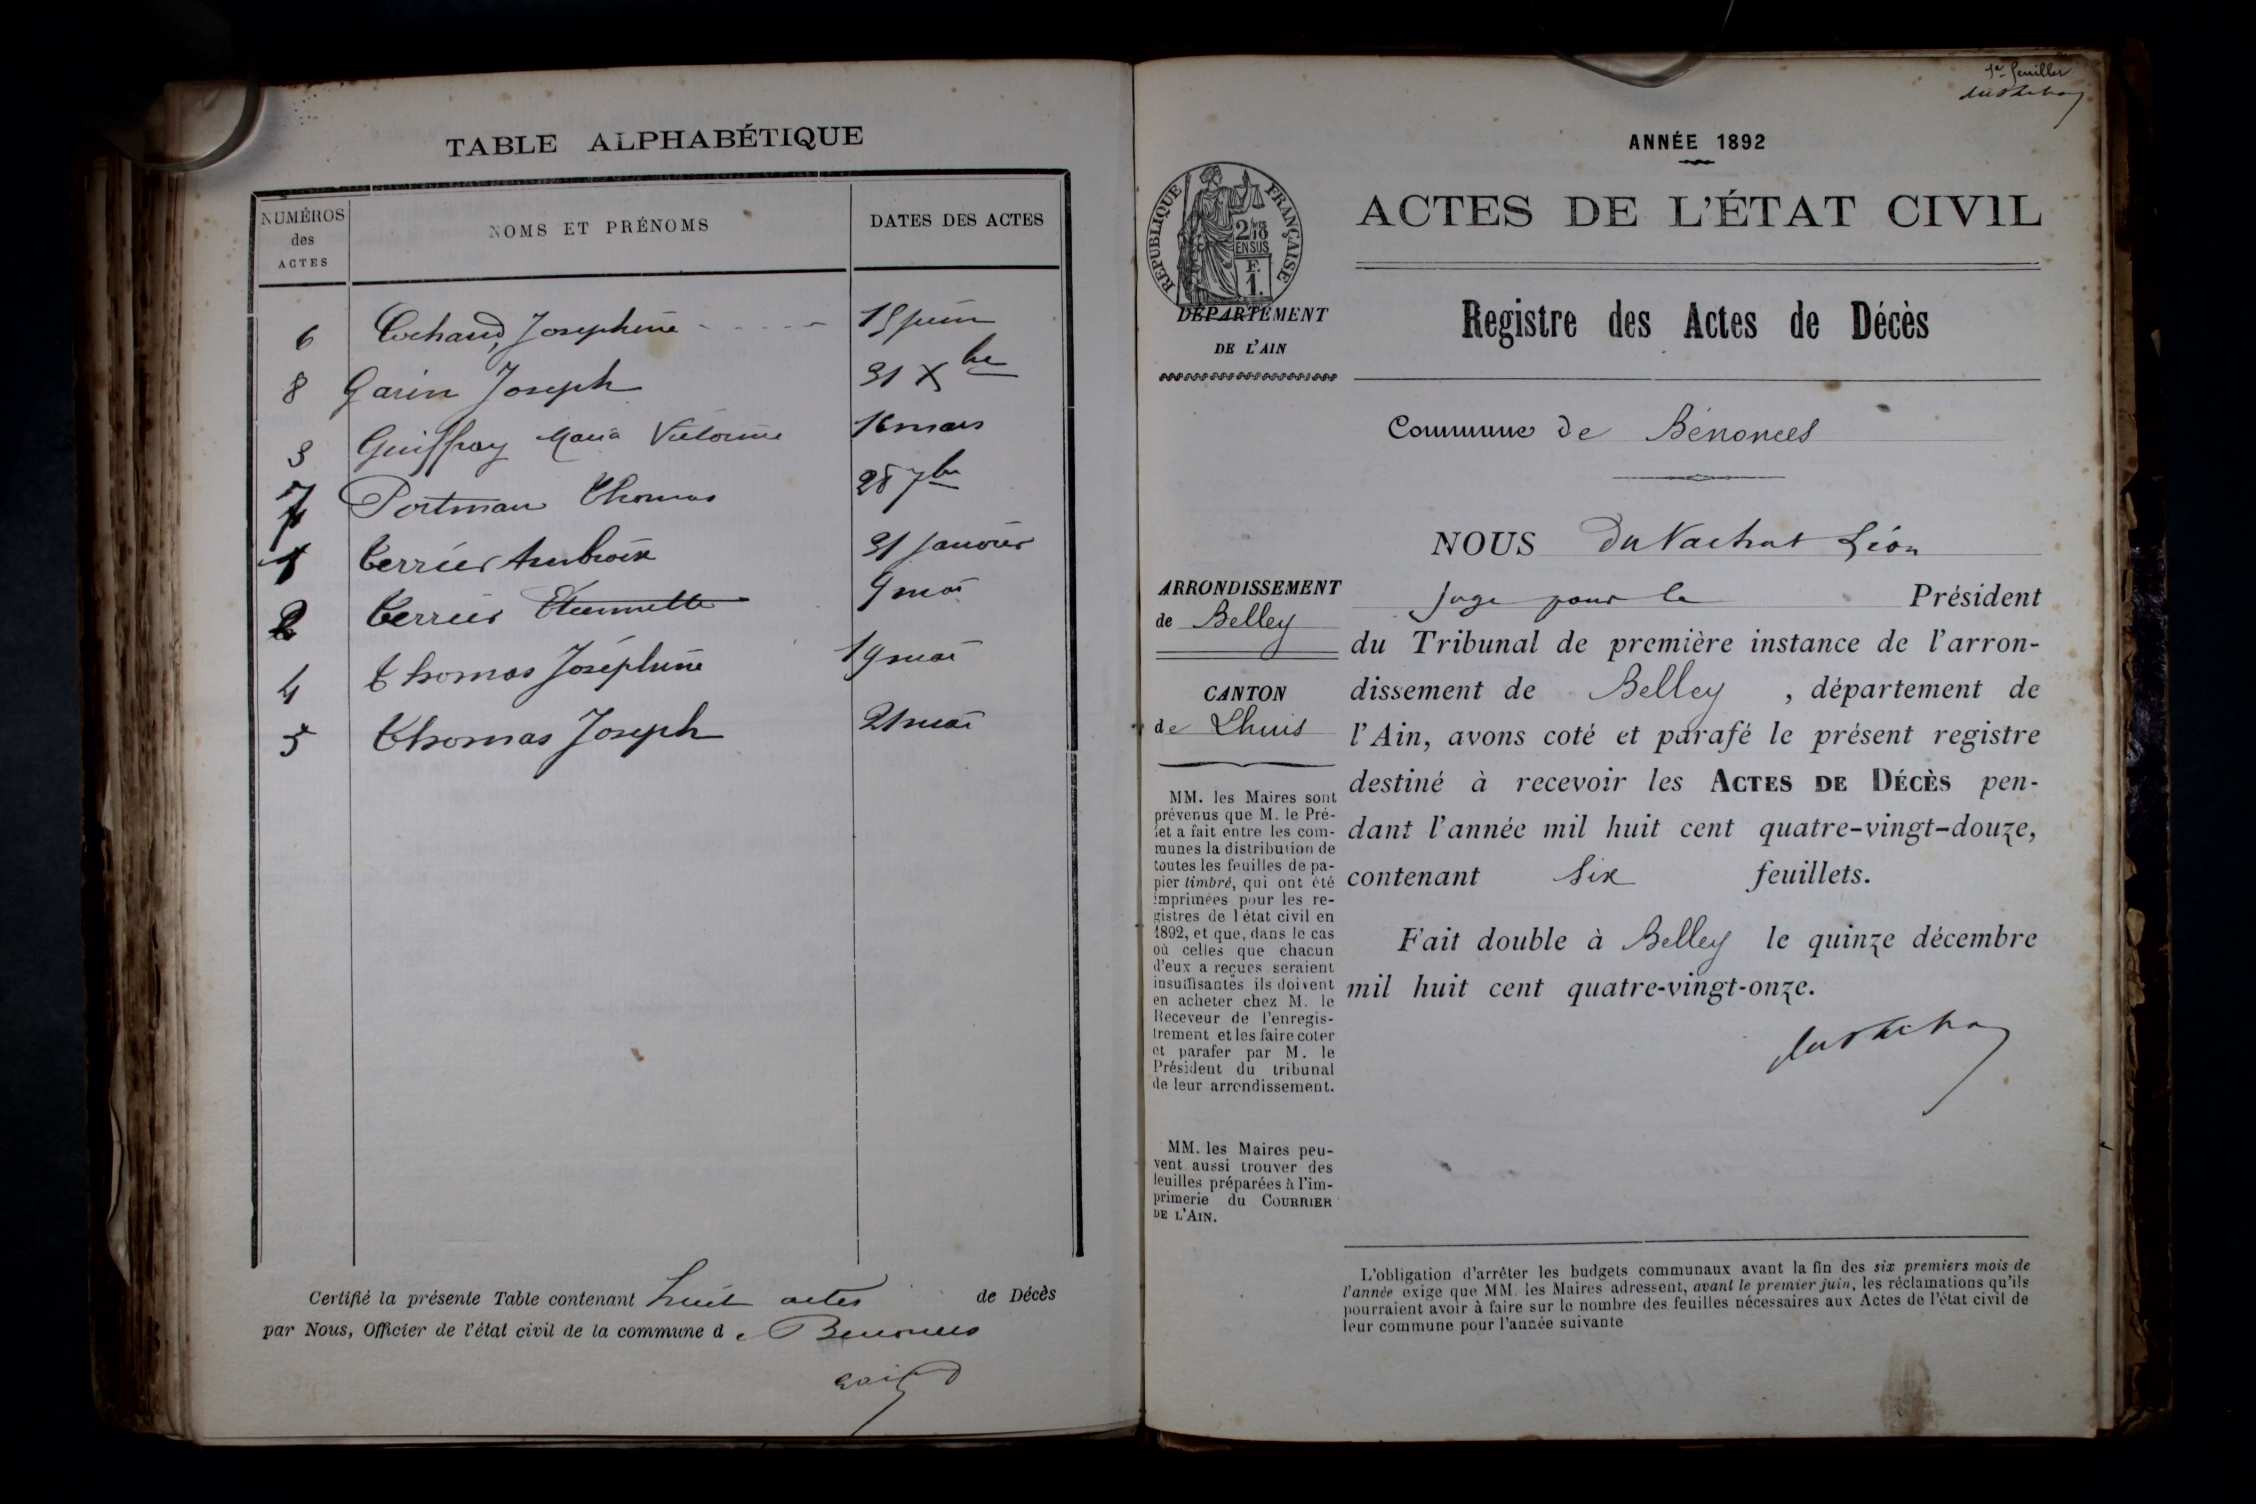 TABLE ALPHABÉTIQUE
NUMÉROS des ACTES NOMS ET PRÉNOMS DATES DES ACTES
6 Cochand, Josephine 15 juin
8 Garin Joseph 31 Xbre
3 Guiffray Maria Victorine 16 mars
7 Portman Thomas 28 7bre
1 Terrier Ambroise 31 janvier
2 Terrier Etiennette 9 mai
4 Thomas Joséphine 19 mai
5 Thomas Joseph 21 mai
Certifié la présente Table contenant huit actes de Décès
par Nous, Officier de l'état civil de la commune de Benonces
1er feuillet
ANNÉE 1892
RÉPUBLIQUE FRANÇAISE
2/10 EN SUS
F. 1.
ACTES DE L'ÉTAT CIVIL
DÉPARTEMENT
DE L'AIN
Registre des Actes de Décès
Commune de Bénonces
NOUS Du Vachat Léon
juge pour le Président
du Tribunal de première instance de l'arron-
dissement de Belley, département de
l'Ain, avons coté et parafé le présent registre
destiné à recevoir les ACTES DE DÉCÈS pen-
dant l'année mil huit cent quatre-vingt-douze,
contenant six feuillets.
Fait double à Belley le quinze décembre
mil huit cent quatre-vingt-onze.
ARRONDISSEMENT
de Belley
CANTON
de Lhuis
MM. les Maires sont
prévenus que M. le Pré-
fet a fait entre les com-
munes la distribution de
toutes les feuilles de pa-
pier timbré, qui ont été
imprimées pour les re-
gistres de l'état civil en
1892, et que, dans le cas
où celles que chacun
d'eux a reçues seraient
insuffisantes ils doivent
en acheter chez M. le
Receveur de l'enregis-
trement et les faire coter
et parafer par M. le
Président du tribunal
de leur arrondissement.
MM. les Maires peu-
vent aussi trouver des
feuilles préparées à l'im-
primerie du COURRIER
DE L'AIN.
L'obligation d'arrêter les budgets communaux avant la fin des six premiers mois de
l'année exige que MM. les Maires adressent, avant le premier juin, les réclamations qu'ils
pourraient avoir à faire sur le nombre des feuilles nécessaires aux Actes de l'état civil de
leur commune pour l'année suivante